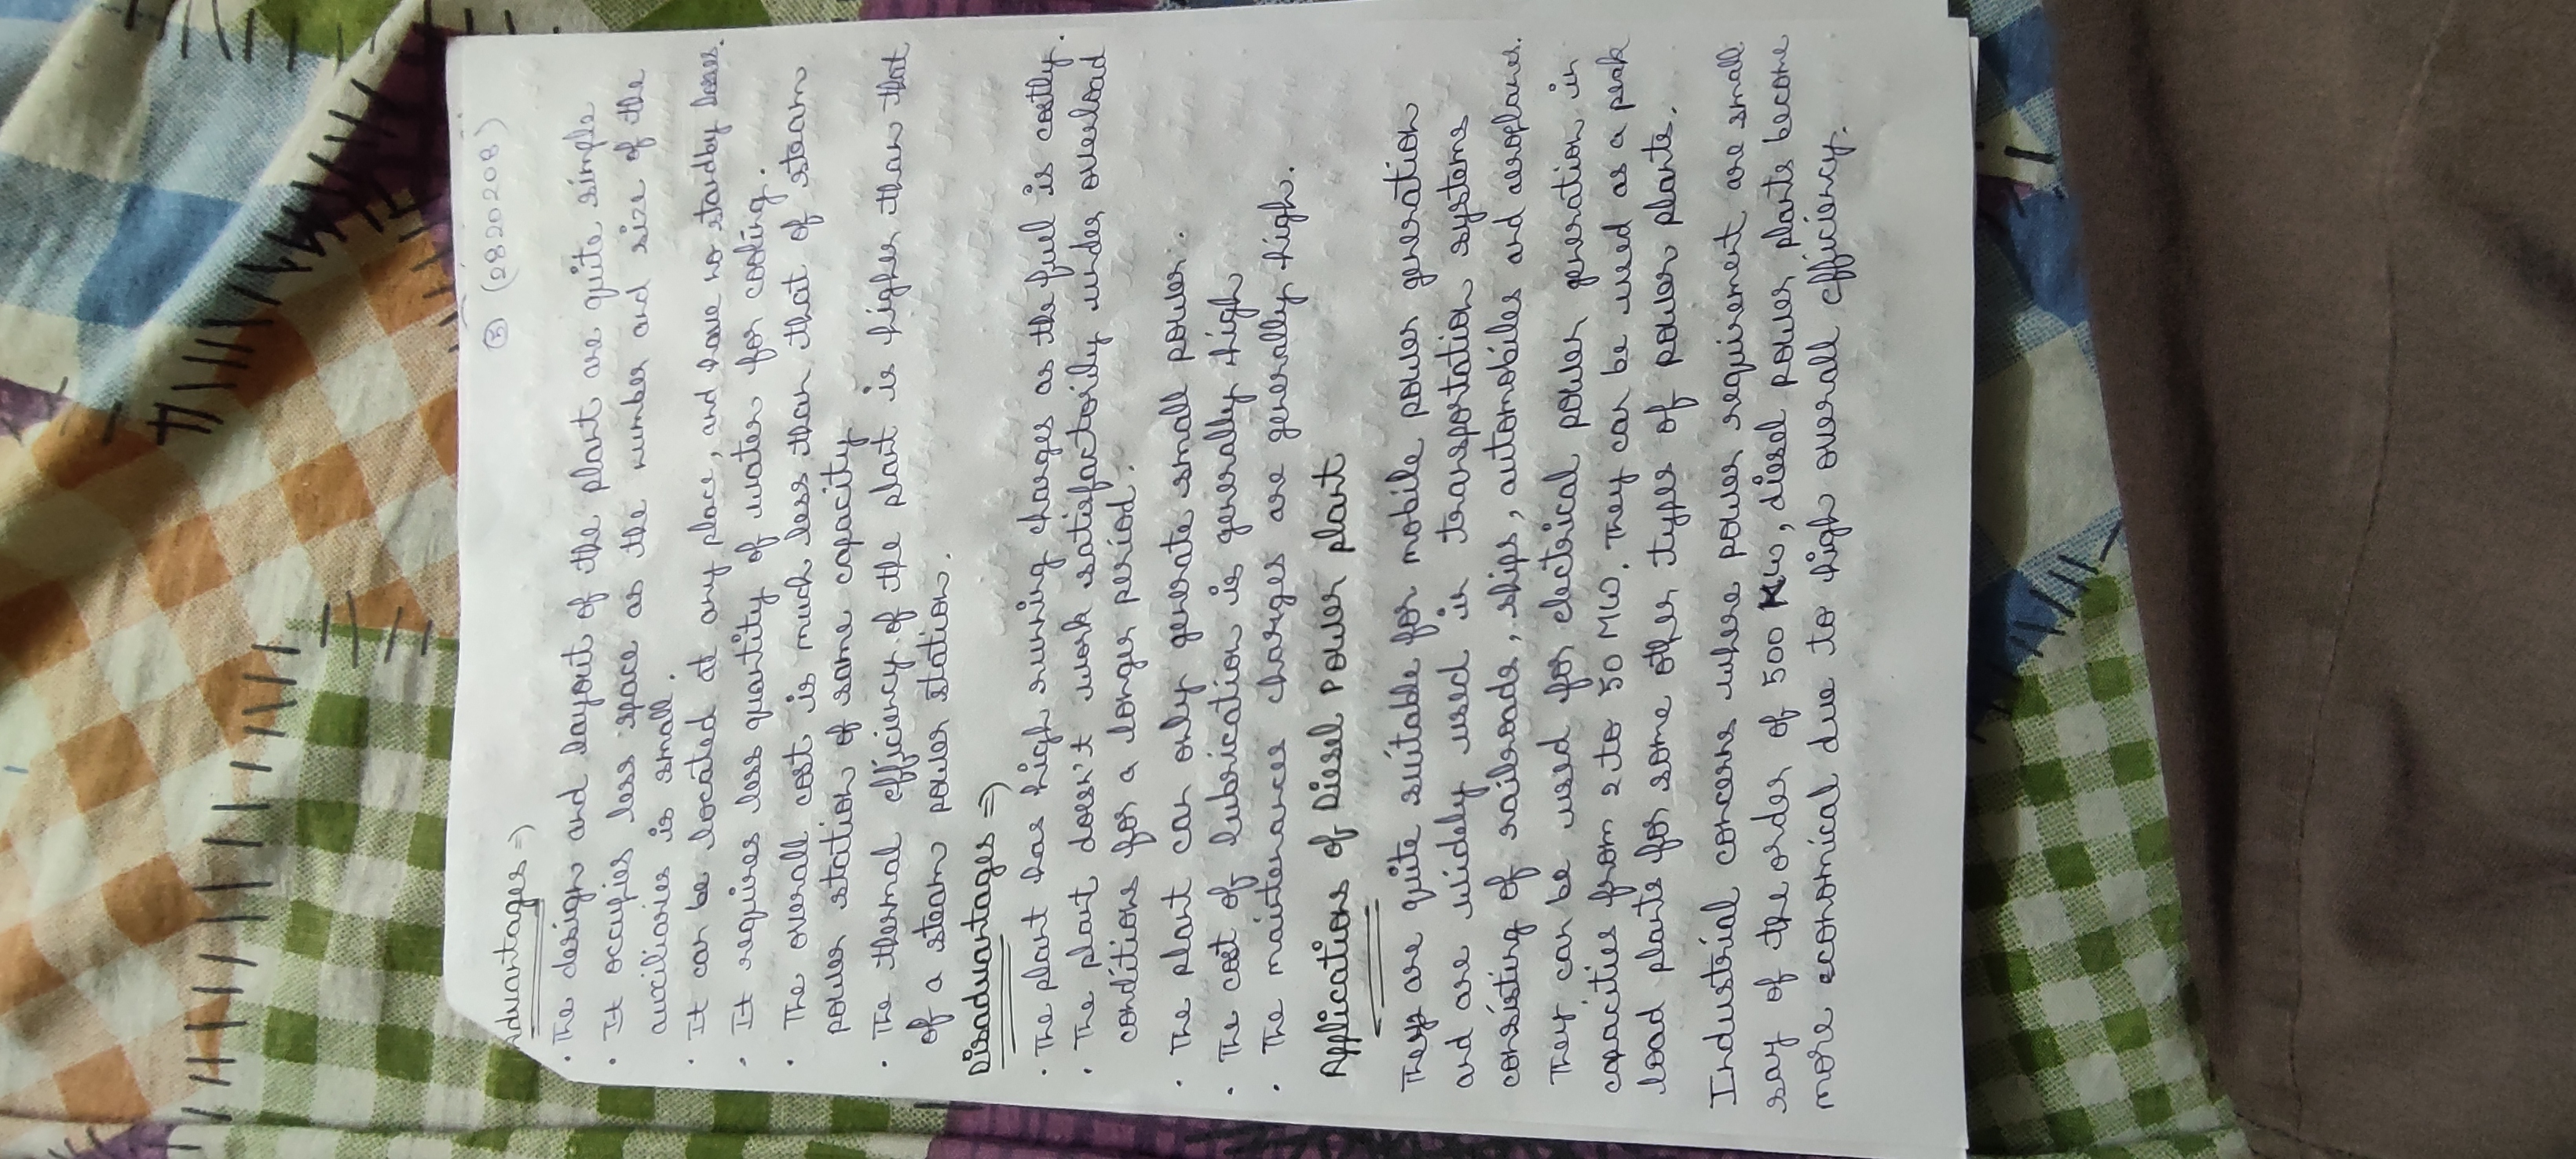 ⑤ (2820208)
Advantages ⇒
· The design and layout of the plant are quite simple
· It occupies less space as the number and size of the
auxiliaries is small.
· It can be located at any place, and have no standby losses.
· It requires less quantity of water for cooling.
· The overall cost is much less than that of steam
power station of same capacity
· The thermal efficiency of the plant is higher than that
of a steam power station.
Disadvantages ⇒
· The plant has high running charges as the fuel is costly.
· The plant doesn't work satisfactorily under overload
conditions for a longer period.
· The plant can only generate small power.
· The cost of lubrication is generally high
· The maintenances charges are generally high.
Applications of Diesel Power plant
They are quite suitable for mobile power generation
and are widely used in transportation systems
consisting of railroads, ships, automobiles and aeroplanes.
They can be used for electrical power generation in
capacities from 2 to 50 MW. They can be used as a peak
load plants for some other types of power plants.
Industrial concerns where power requirement are small
say of the order of 500 KW, diesel power plants become
more economical due to high overall efficiency.